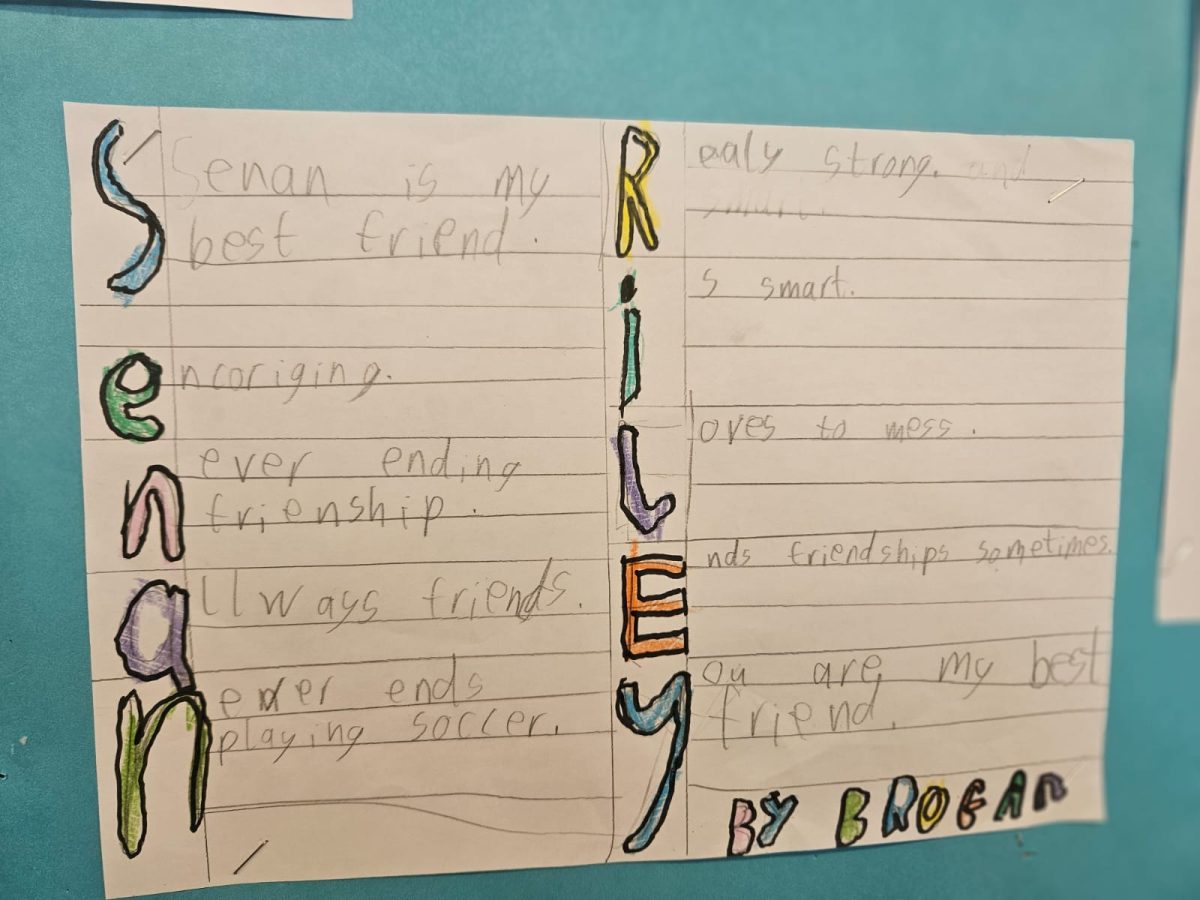 Senan
Senan is my
best friend.
ncoriging.
ever ending
frienship.
llways friends.
ever ends
playing soccer.
RiLEy
ealy strong. and
smart.
s smart.
oves to mess.
nds friendships sometimes.
ou are my best
friend.
BY BROGAN